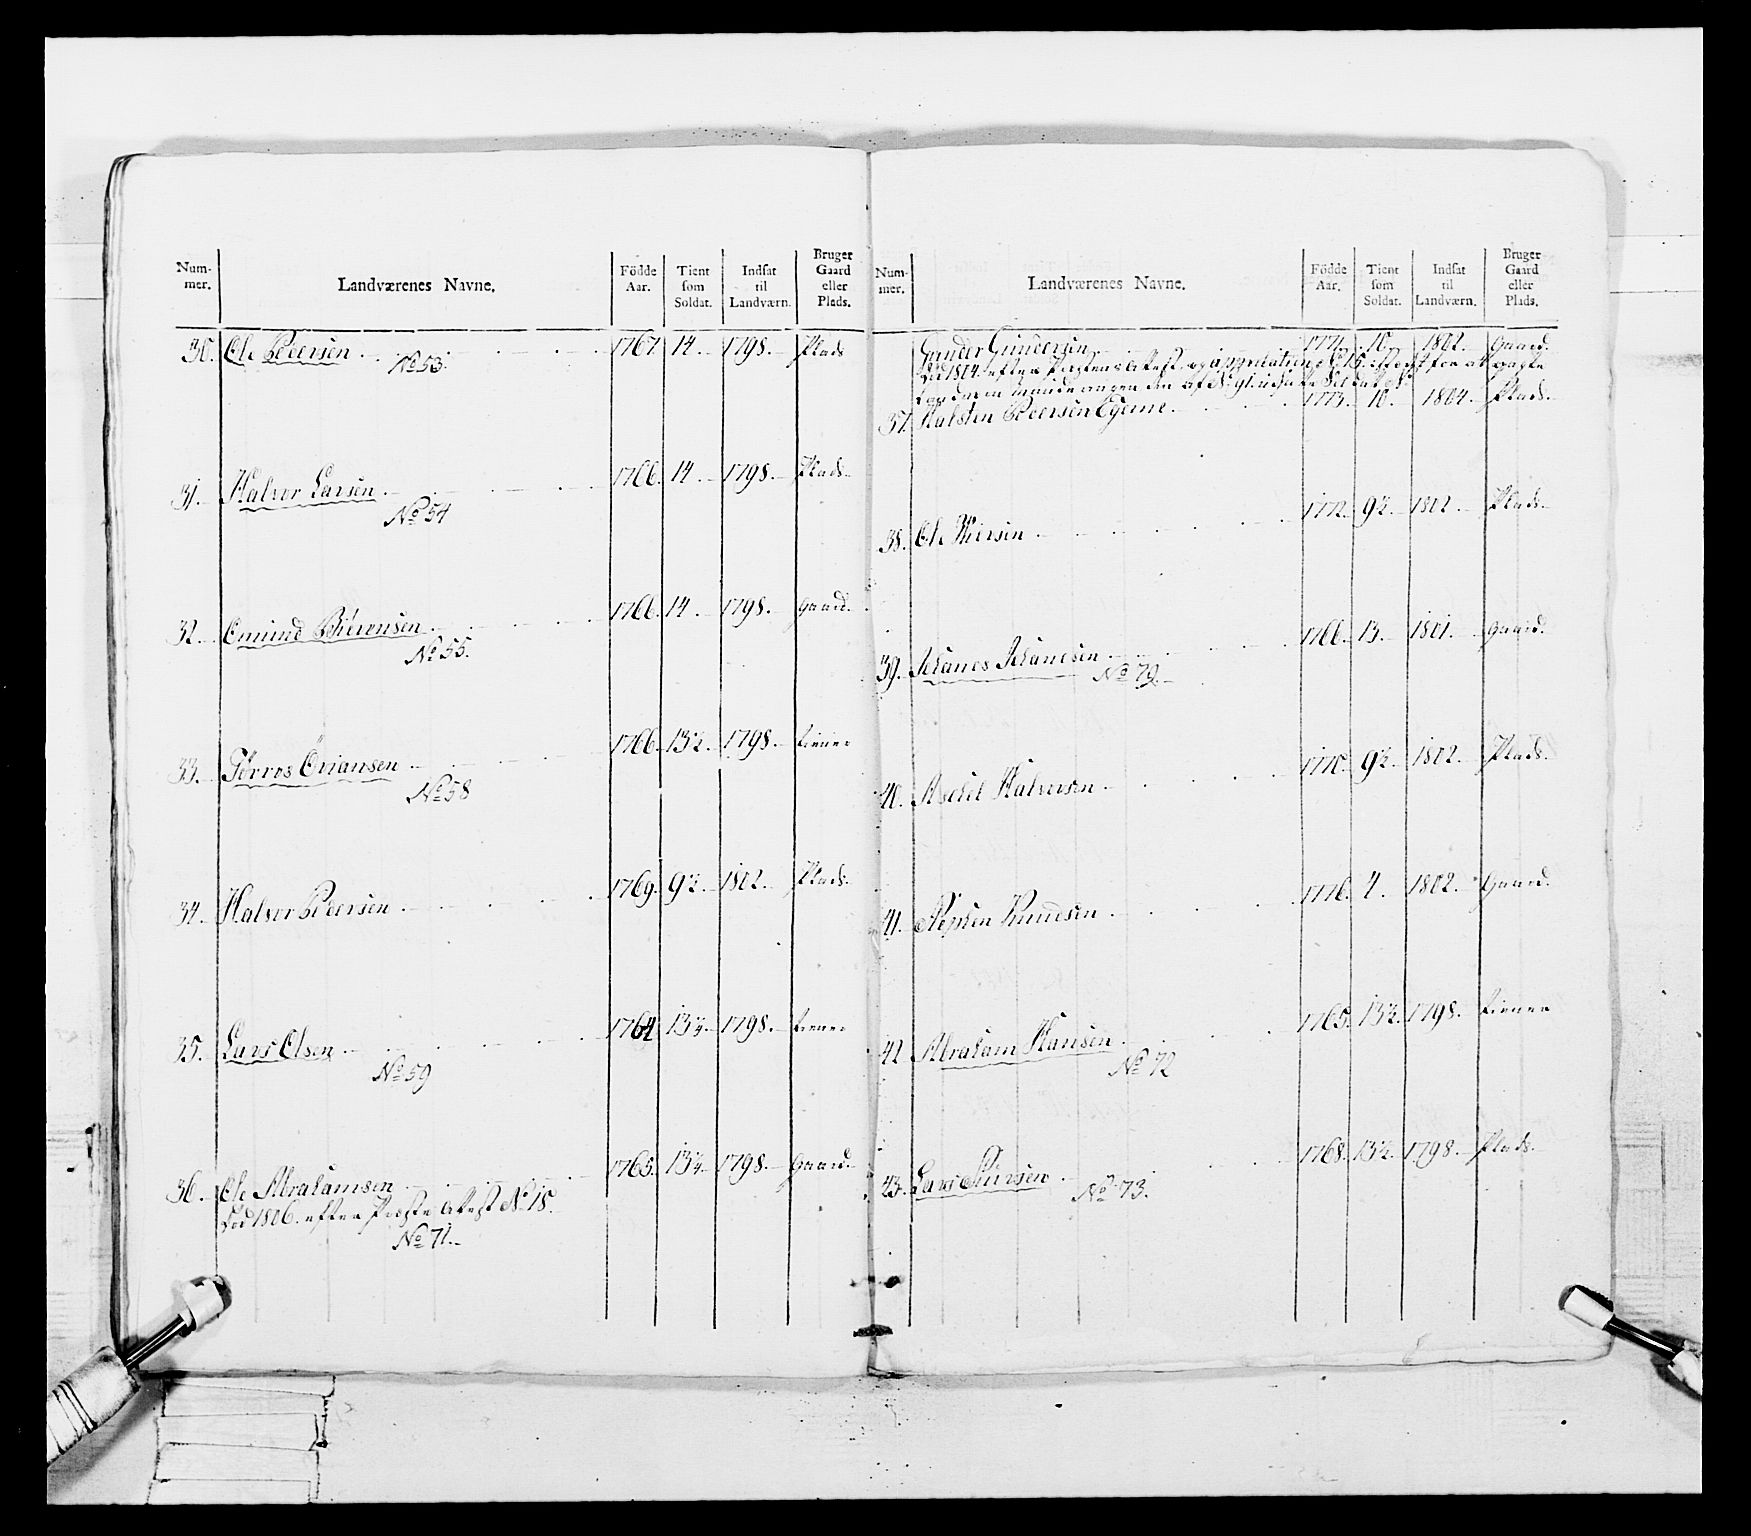 Num-
mer.
Landværenes Navne.
Födde
Aar.
Tient
som
Soldat.
Indsat
til
Landværn.
Bruger
Gaard
eller
Plads.
30. Ole Pedersen 1767. 14. 1798. Plads
No 53.
31. Halvor Larsen 1766. 14. 1798. Plads.
No 54
32. Emund Biörensen 1766. 14. 1798. Gaard.
No 55.
33. Törres Öriansen 1766. 13½. 1798. tiener
No 58
34. Halvor Pedersen 1769. 9½. 1802. Plads.
35. Lars Olsen 1764 13½. 1798. tiener
No 59
36. Ole Abrahamsen 1765. 13½. 1798. Gaard.
död 1806. efter Præste Attest No 18.
No 71.
Num-
mer.
Landværenes Navne.
Födde
Aar.
Tient
som
Soldat.
Indsat
til
Landværn.
Bruger
Gaard
eller
Plads.
Gunder Gundersen 10. 1802. Gaard.
död 1804. efter Præstens Attest og
37. Halsten Pedersen Egerne 1773. 10. 1804. Plads.
38. Ole 1772. 9½. 1802. Plads.
39. Johanes Johanesen 1766. 13. 1801. Gaard.
No 79.
40. Halvorsen 1770. 9½. 1802. Plads.
41. Knudsen 1776. 4. 1802. Gaard.
42 Abraham Hansen 1765. 13½. 1798. tiener
No 72
43. Lars 1768. 13½. 1798. Plads.
No 73.